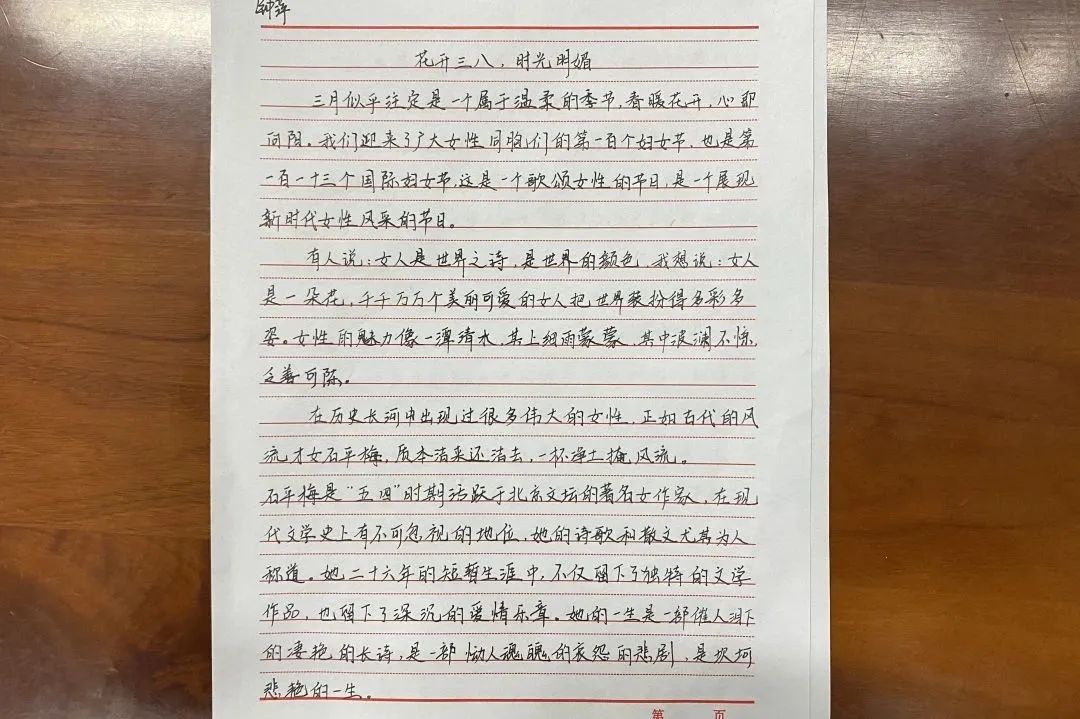 钟萍
花开三八，时光明媚
三月似乎注定是一个属于温柔的季节，春暖花开，心那
向阳。我们迎来了广大女性同胞们的第一百个妇女节，也是第
一百一十三个国际妇女节，这是一个歌颂女性的节日，是一个展现
新时代女性风采的节日。
有人说：女人是世界之诗，是世界的颜色，我想说：女人
是一朵花，千千万万个美丽可爱的女人把世界装扮得多彩多
姿。女性的魅力像一潭清水，其上细雨蒙蒙，其中波澜不惊，
乏善可陈。
在历史长河中出现过很多伟大的女性，正如百代的风
流才女石平梅，质本洁来还洁去，一杯净土掩风流。
石平梅是“五四”时期活跃于北京文坛的著名女作家，在现
代文学史上有不可忽视的地位，她的诗歌和散文尤其为人
称道。她二十六年的短暂生涯中，不仅留下了独特的文学
作品，也留下了深沉的爱情乐章。她的一生是一部催人泪下
的凄艳的长诗，是一部恸人魂魄的哀怨的悲剧，是坎坷
悲艳的一生。
第 页